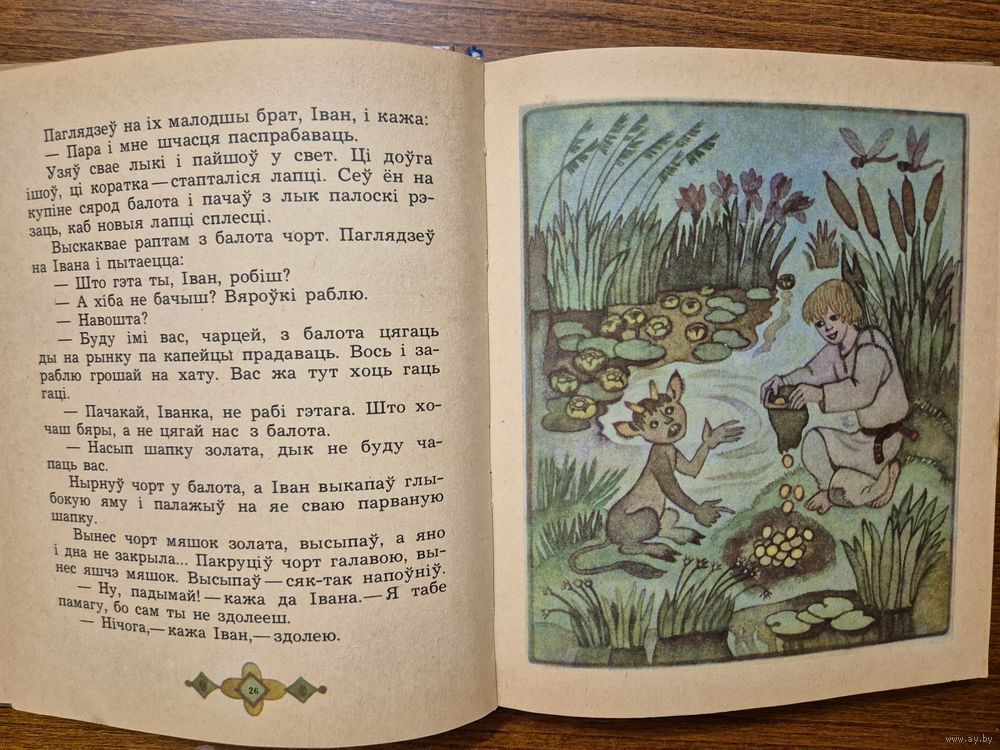 Паглядзеў на іх малодшы брат, Іван, і кажа:
— Пара і мне шчасця паспрабаваць.
Узяў свае лыкі і пайшоў у свет. Ці доўга
ішоў, ці коратка — стапталіся лапці. Сеў ён на
купіне сярод балота і пачаў з лык палоскі рэ-
заць, каб новыя лапці сплесці.
Выскаквае раптам з балота чорт. Паглядзеў
на Івана і пытаецца:
— Што гэта ты, Іван, робіш?
— А хіба не бачыш? Вяроўкі раблю.
— Навошта?
— Буду імі вас, чарцей, з балота цягаць
ды на рынку па капейцы прадаваць. Вось і за-
раблю грошай на хату. Вас жа тут хоць гаць
гаці.
— Пачакай, Іванка, не рабі гэтага. Што хо-
чаш бяры, а не цягай нас з балота.
— Насып шапку золата, дык не буду ча-
паць вас.
Нырнуў чорт у балота, а Іван выкапаў глы-
бокую яму і палажыў на яе сваю парваную
шапку.
Вынес чорт мяшок золата, высыпаў, а яно
і дна не закрыла... Пакруціў чорт галавою, вы-
нес яшчэ мяшок. Высыпаў — сяк-так напоўніў.
— Ну, падымай! — кажа да Івана. — Я табе
памагу, бо сам ты не здолееш.
— Нічога, — кажа Іван, — здолею.
26
www.ay.by